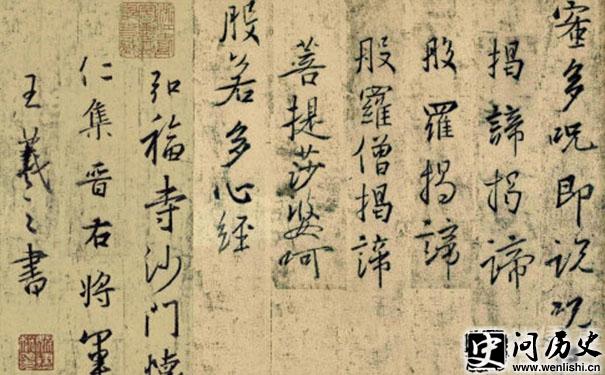 蜜多呪即說呪
揭諦揭諦
般羅揭諦
般羅僧揭諦
菩提莎婆呵
般若多心經
弘福寺沙門懷
仁集晉右將軍
王羲之書
史 问历史
www.wenlishi.cn